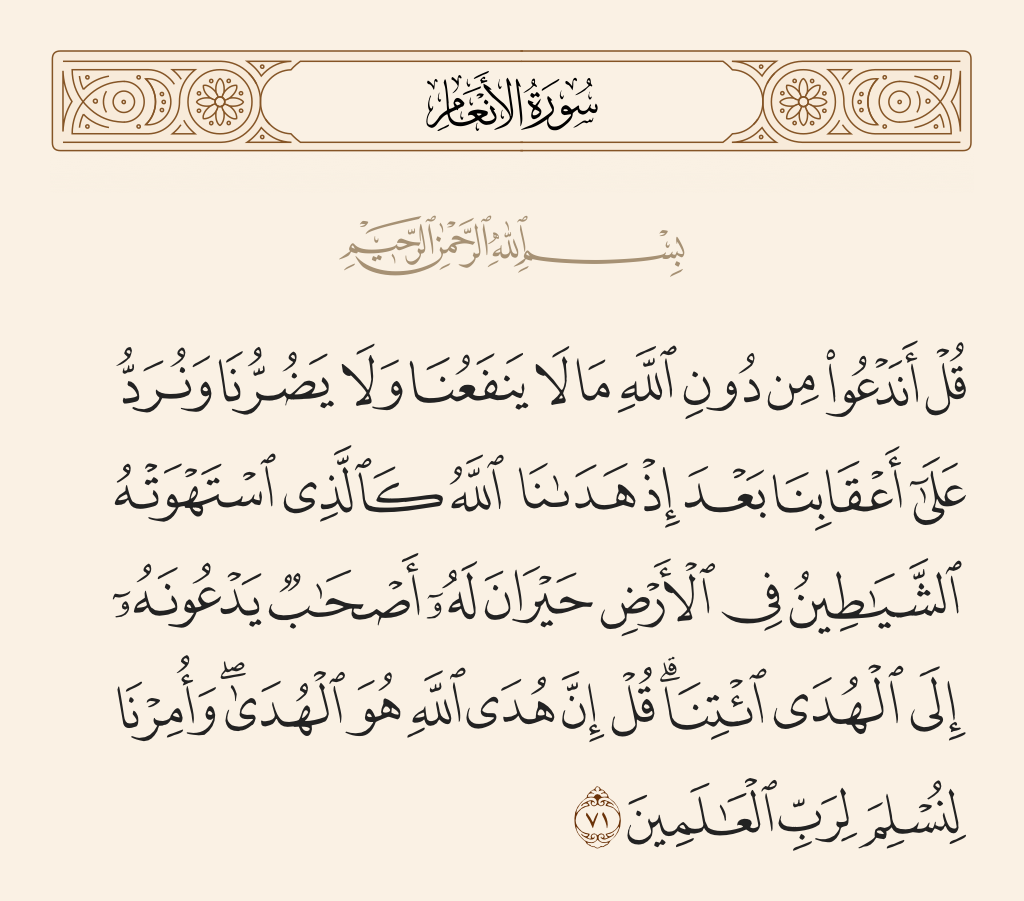 سُورَةُ الأَنْعَامِ
بِسْمِ ٱللَّهِ ٱلرَّحْمَٰنِ ٱلرَّحِيمِ
قُلْ أَنَدْعُوا۟ مِن دُونِ ٱللَّهِ مَا لَا يَنفَعُنَا وَلَا يَضُرُّنَا وَنُرَدُّ
عَلَىٰٓ أَعْقَابِنَا بَعْدَ إِذْ هَدَىٰنَا ٱللَّهُ كَٱلَّذِى ٱسْتَهْوَتْهُ
ٱلشَّيَـٰطِينُ فِى ٱلْأَرْضِ حَيْرَانَ لَهُۥٓ أَصْحَـٰبٌ يَدْعُونَهُۥٓ
إِلَى ٱلْهُدَى ٱئْتِنَا ۗ قُلْ إِنَّ هُدَى ٱللَّهِ هُوَ ٱلْهُدَىٰ ۖ وَأُمِرْنَا
لِنُسْلِمَ لِرَبِّ ٱلْعَـٰلَمِينَ ٧١